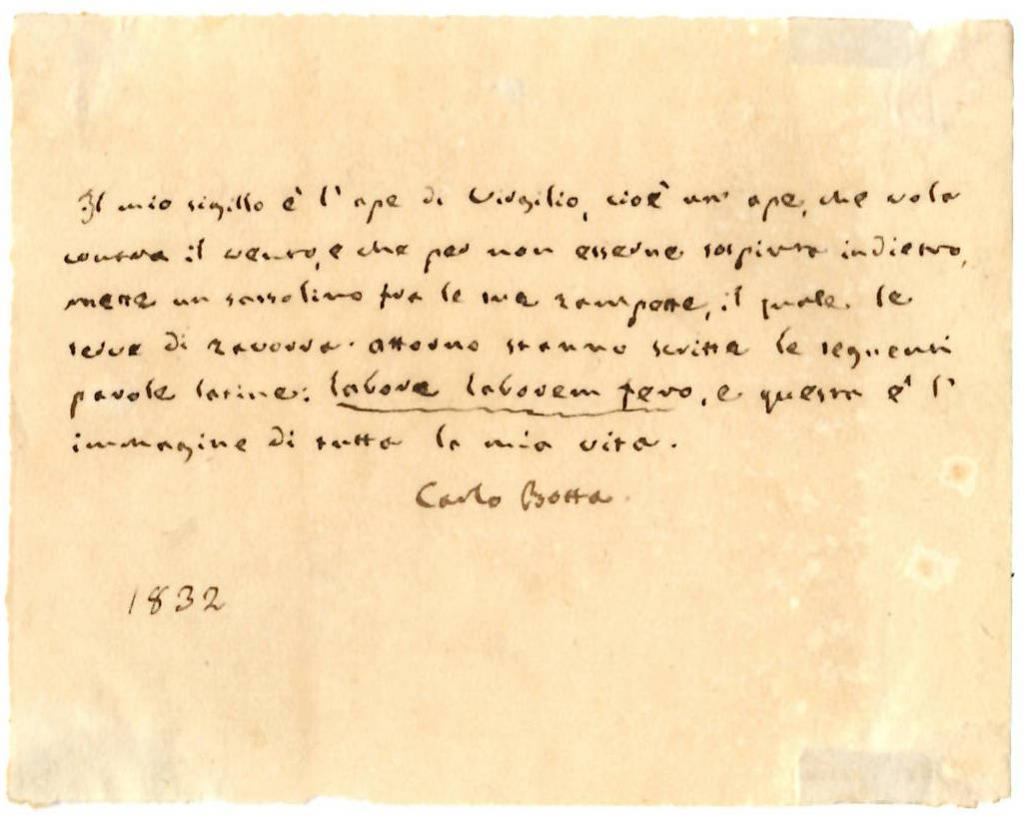 Il mio sigillo è l' ape di Virgilio, cioè un' ape, che vola
contra il vento, e che per non esserne sospinta indietro,
mette un sassolino fra le sue zampette, il quale le
serve di zavorra. attorno stanno scritte le seguenti
parole latine: labore laborem fero, e questa è l'
immagine di tutta la mia vita.
Carlo Botta.
1832